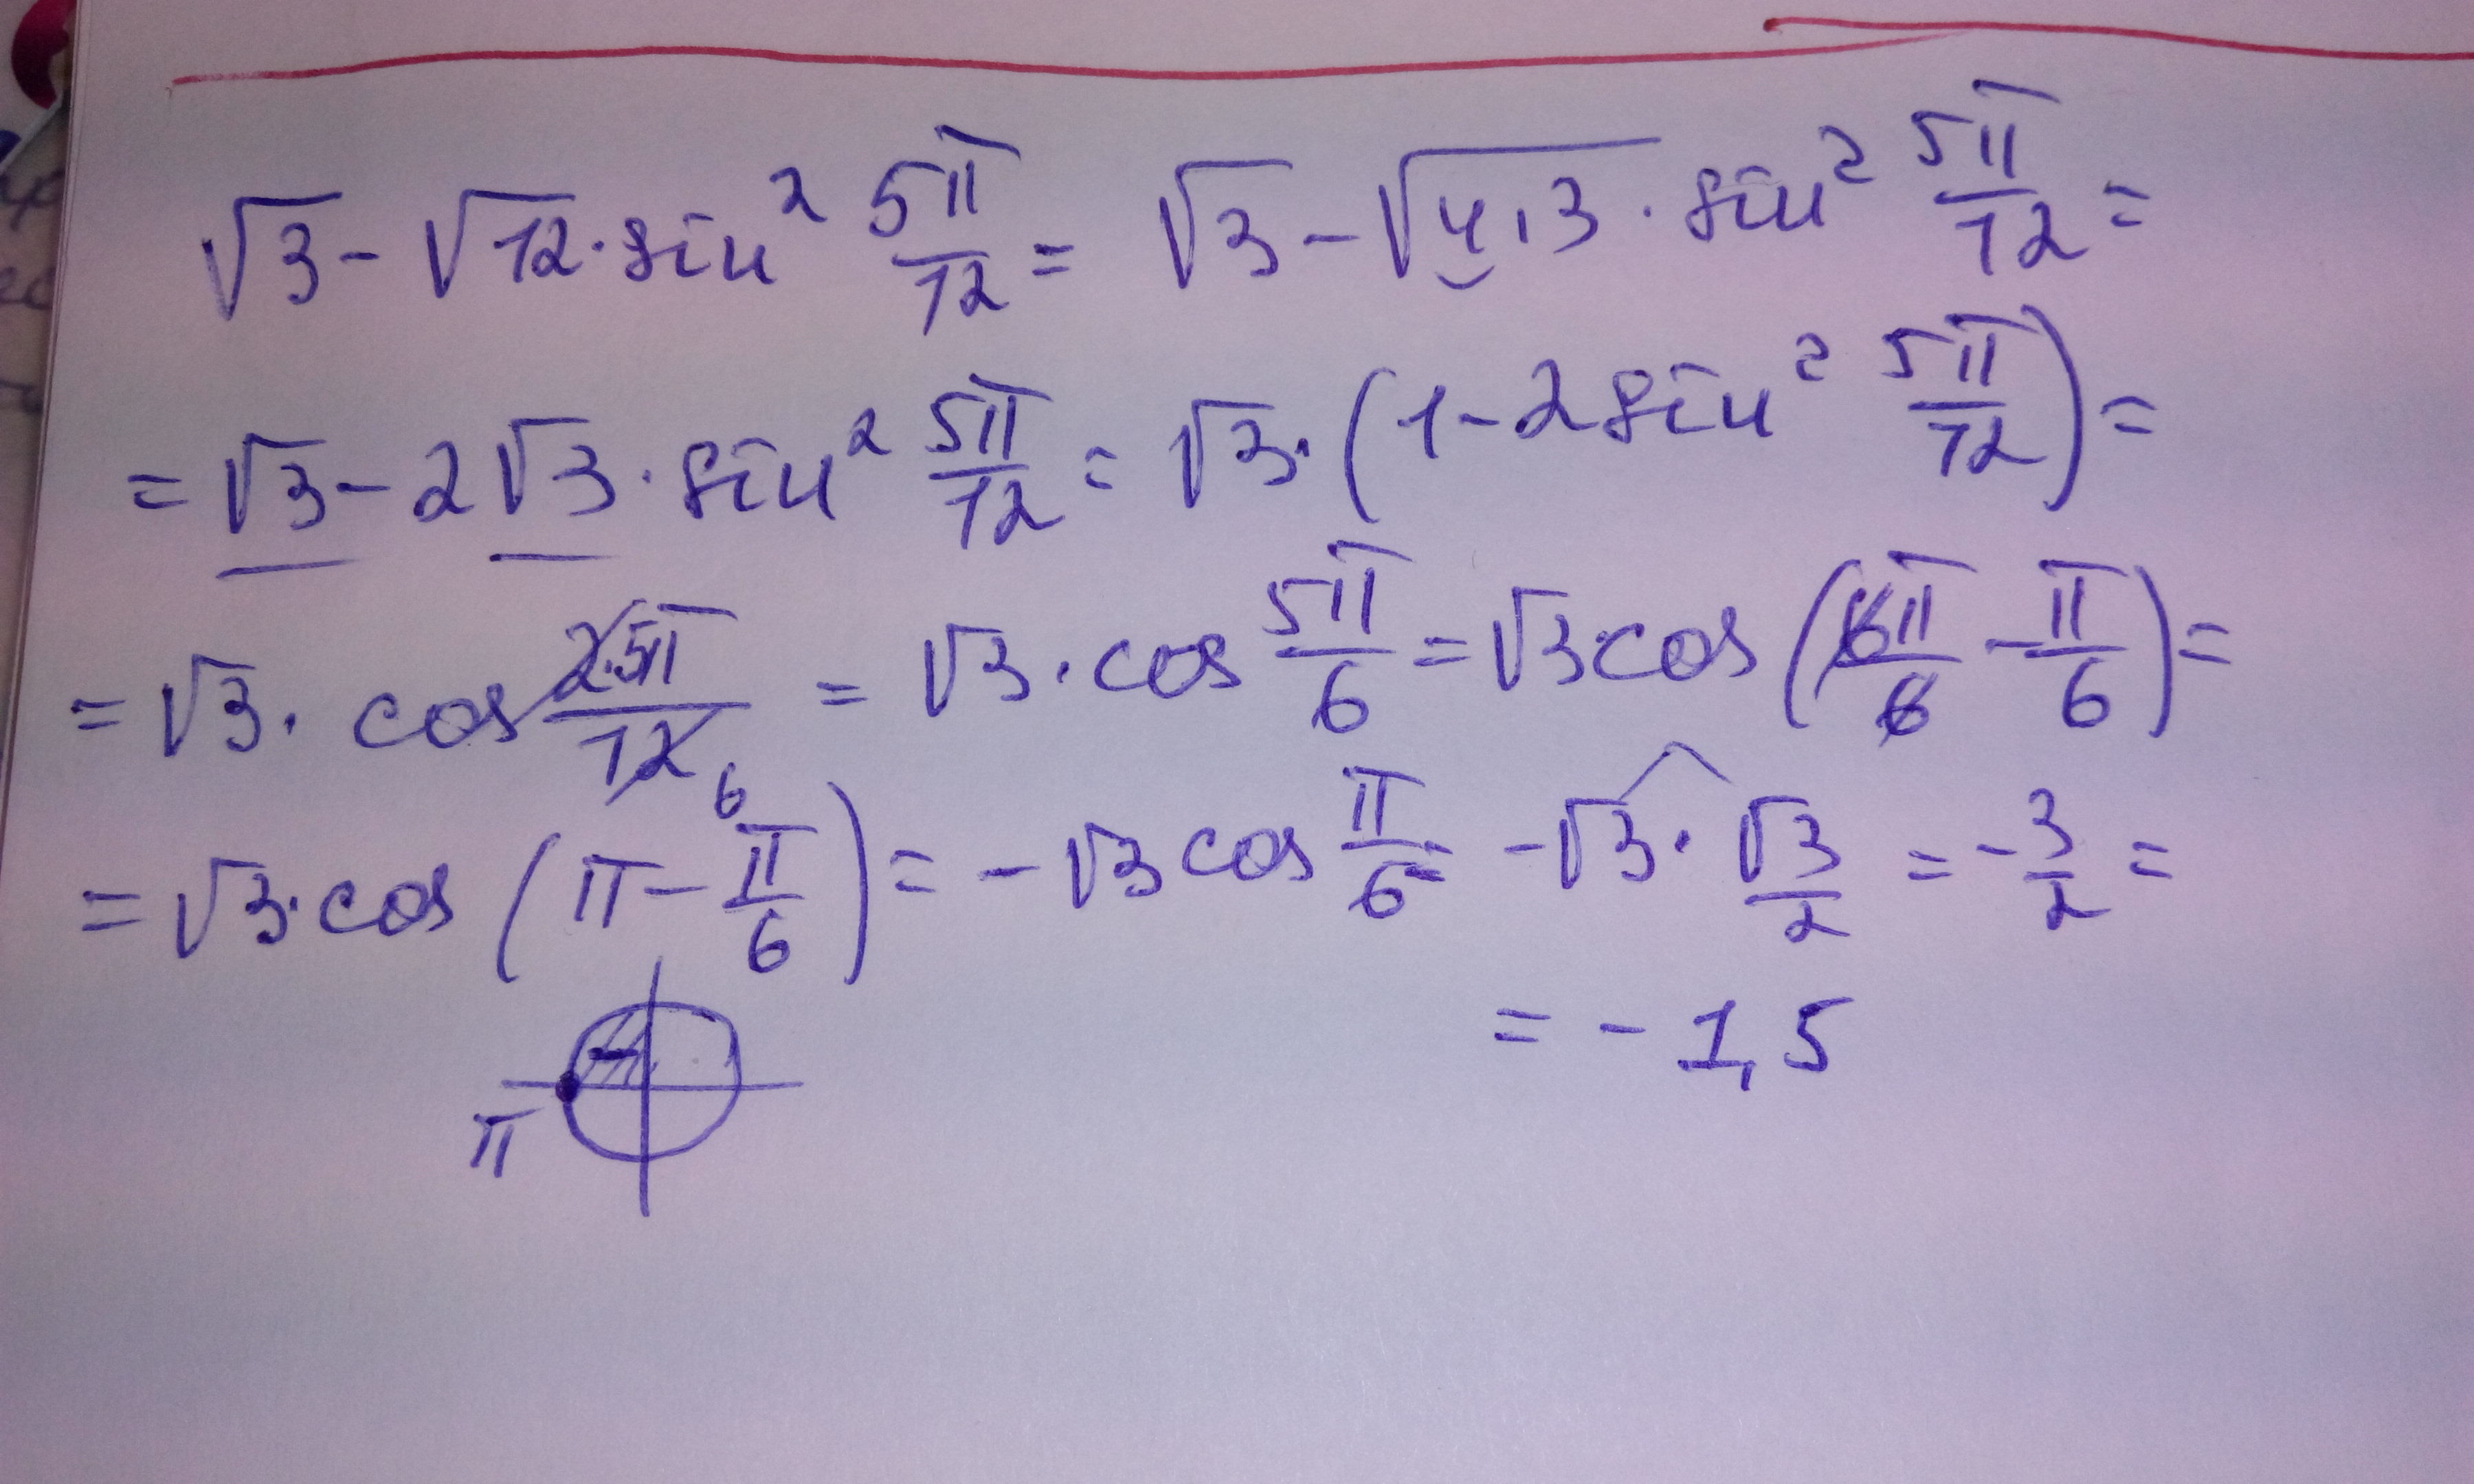 √3 - √12 · sin² 5π/12 = √3 - √4·3 · sin² 5π/12 =
= √3 - 2√3 · sin² 5π/12 = √3 · (1 - 2 sin² 5π/12) =
= √3 · cos 2·5π/12 6 = √3 · cos 5π/6 = √3 · cos (6π/6 - π/6) =
= √3 · cos (π - π/6) = - √3 cos π/6 = - √3 · √3/2 = - 3/2 =
= - 1,5
-
π